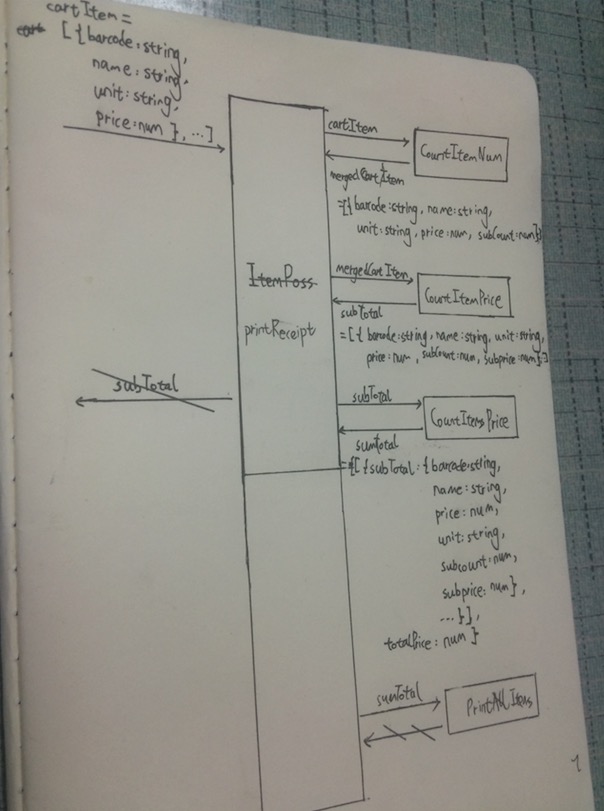 cartItem =
[{barcode:string,
name:string,
unit:string,
price:num }, ...]
cartItem
CountItemNum
mergedCartItem
=[{barcode:string, name:string,
unit:string, price:num, subCount:num}]
ItemPoss
printReceipt
mergedCartItem
CountItemPrice
subTotal
=[{ barcode:string, name:string, unit:string,
price:num, subCount:num, subprice:num}]
subTotal
subTotal
CountItemsPrice
sumTotal
={[{subTotal:{barcode:string,
name:string,
price:num,
unit:string,
subcount:num,
subprice:num},
...}],
totalPrice: num}
sumTotal
PrintAllItems
1